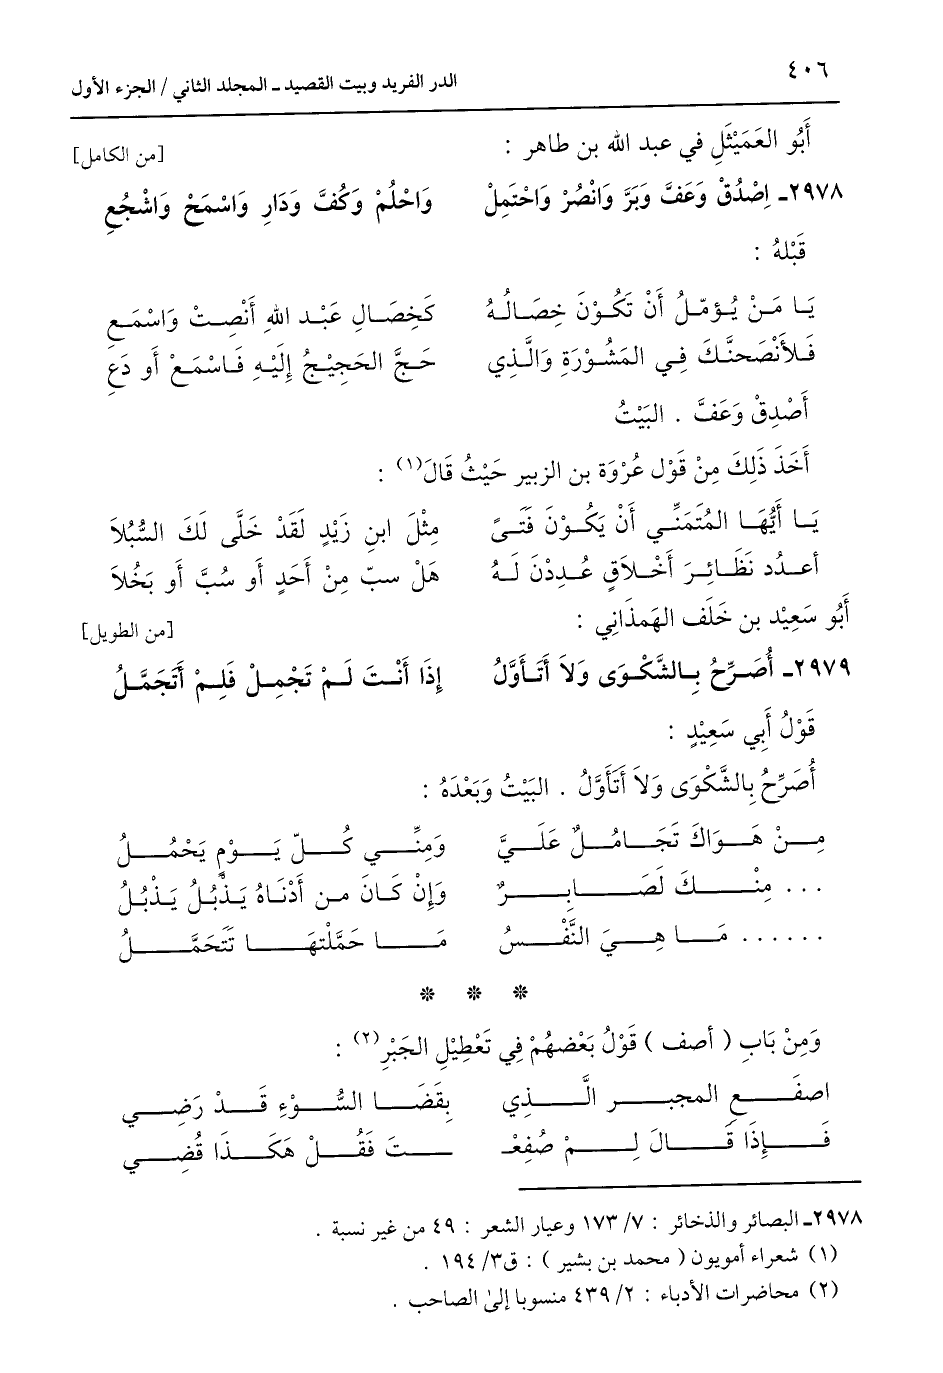 ٤٠٦
الدر الفريد وبيت القصيد ـ المجلد الثاني / الجزء الأول
أَبُو العَمَيْثَلِ في عبد الله بن طاهر : [من الكامل]
٢٩٧٨ـ اِصْدُقْ وَعَفَّ وَبَرَّ وَانْصُرْ وَاحْتَمِلْ وَاحْلُمْ وَكُفَّ وَدَارِ وَاسْمَحْ وَاشْجُعِ
قَبْلهُ :
يَا مَنْ يُؤمّلُ أَنْ تَكُوْنَ خِصَالُهُ كَخِصَالِ عَبْدِ اللهِ أَنْصِتْ وَاسْمَعِ
فَلأَنْصَحنَّكَ فِي المَشُوْرَةِ وَالَّذِي حَجَّ الحَجِيْجُ إِلَيْهِ فَاسْمَعْ أَو دَعِ
أَصْدِقْ وَعَفَّ . البَيْتُ
أَخَذَ ذَلِكَ مِنْ قَوْل عُرْوَة بن الزبير حَيْثُ قَالَ(١) :
يَا أَيُّهَا المُتَمَنِّي أَنْ يَكُوْنَ فَتَىً مِثْلَ ابن زَيْدٍ لَقَدْ خَلَّى لَكَ السُّبُلاَ
أعدُد نَظَائِرَ أَخْلاَقٍ عُدِدْنَ لَهُ هَلْ سبّ مِنْ أَحَدٍ أَو سُبَّ أَو بَخُلاَ
أَبُو سَعِيْد بن خَلَف الهَمذَانِي : [من الطويل]
٢٩٧٩ـ أُصَرِّحُ بِالشَّكْوَى وَلاَ أَتَأَوَّلُ إِذَا أَنْتَ لَمْ تَجْمِلْ فَلِمْ أَتَجَمَّلُ
قَوْلُ أَبِي سَعِيْدٍ :
أُصَرِّحُ بِالشَّكْوَى وَلاَ أَتَأَوَّلُ . البَيْتُ وَبَعْدَهُ :
مِنْ هَوَاكَ تَجَامُلٌ عَلَيَّ وَمِنِّي كُلّ يَوْمٍ يَحْمُلُ
... مِنْكَ لَصَابِرٌ وَإِنْ كَانَ من أَدْنَاهُ يَذْبُلُ يَذْبُلُ
...... مَا هِيَ النَّفْسُ مَا حَمَّلْتهَا تَتَحَمَّلُ
* * *
وَمِنْ بَابِ ( أصف ) قَوْلُ بَعْضهُمْ فِي تَعْطِيْلِ الجَبْرِ(٢) :
اصفَعِ المجبر الَّذِي بِقَضَا السُّوْءِ قَدْ رَضِي
فَإِذَا قَالَ لِمْ صُفِعْـ ـتَ فَقُلْ هَكَذَا قُضِي
٢٩٧٨ـ البصائر والذخائر : ٧/ ١٧٣ وعيار الشعر : ٤٩ من غير نسبة .
(١) شعراء أمويون ( محمد بن بشير ) : ق٣/ ١٩٤ .
(٢) محاضرات الأدباء : ٢/ ٤٣٩ منسوبا إلى الصاحب .